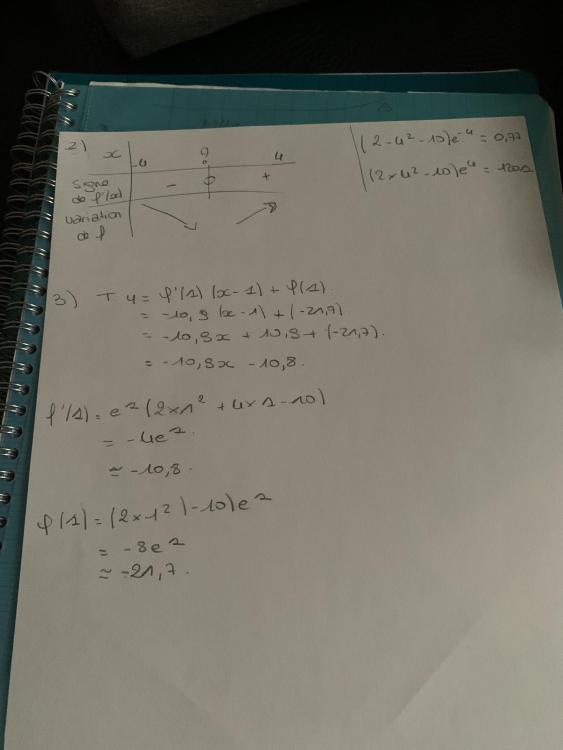 2) x -4 ? 4
signe de f'(x) - 0 +
variation de f
(2-4²-10)e⁻⁴ = 0,77
(2×4²-10)e⁴ = 1201
3) T y = f'(1)(x-1) + f(1).
= -10,9 (x-1) + (-21,7)
= -10,9x + 10,9 + (-21,7).
= -10,9x - 10,8.
f'(1) = e¹(2×1² + 4×1 - 10)
= -4e¹.
≈ -10,8.
f(1) = (2×1²) - 10)e¹
= -8e¹
≈ -21,7.